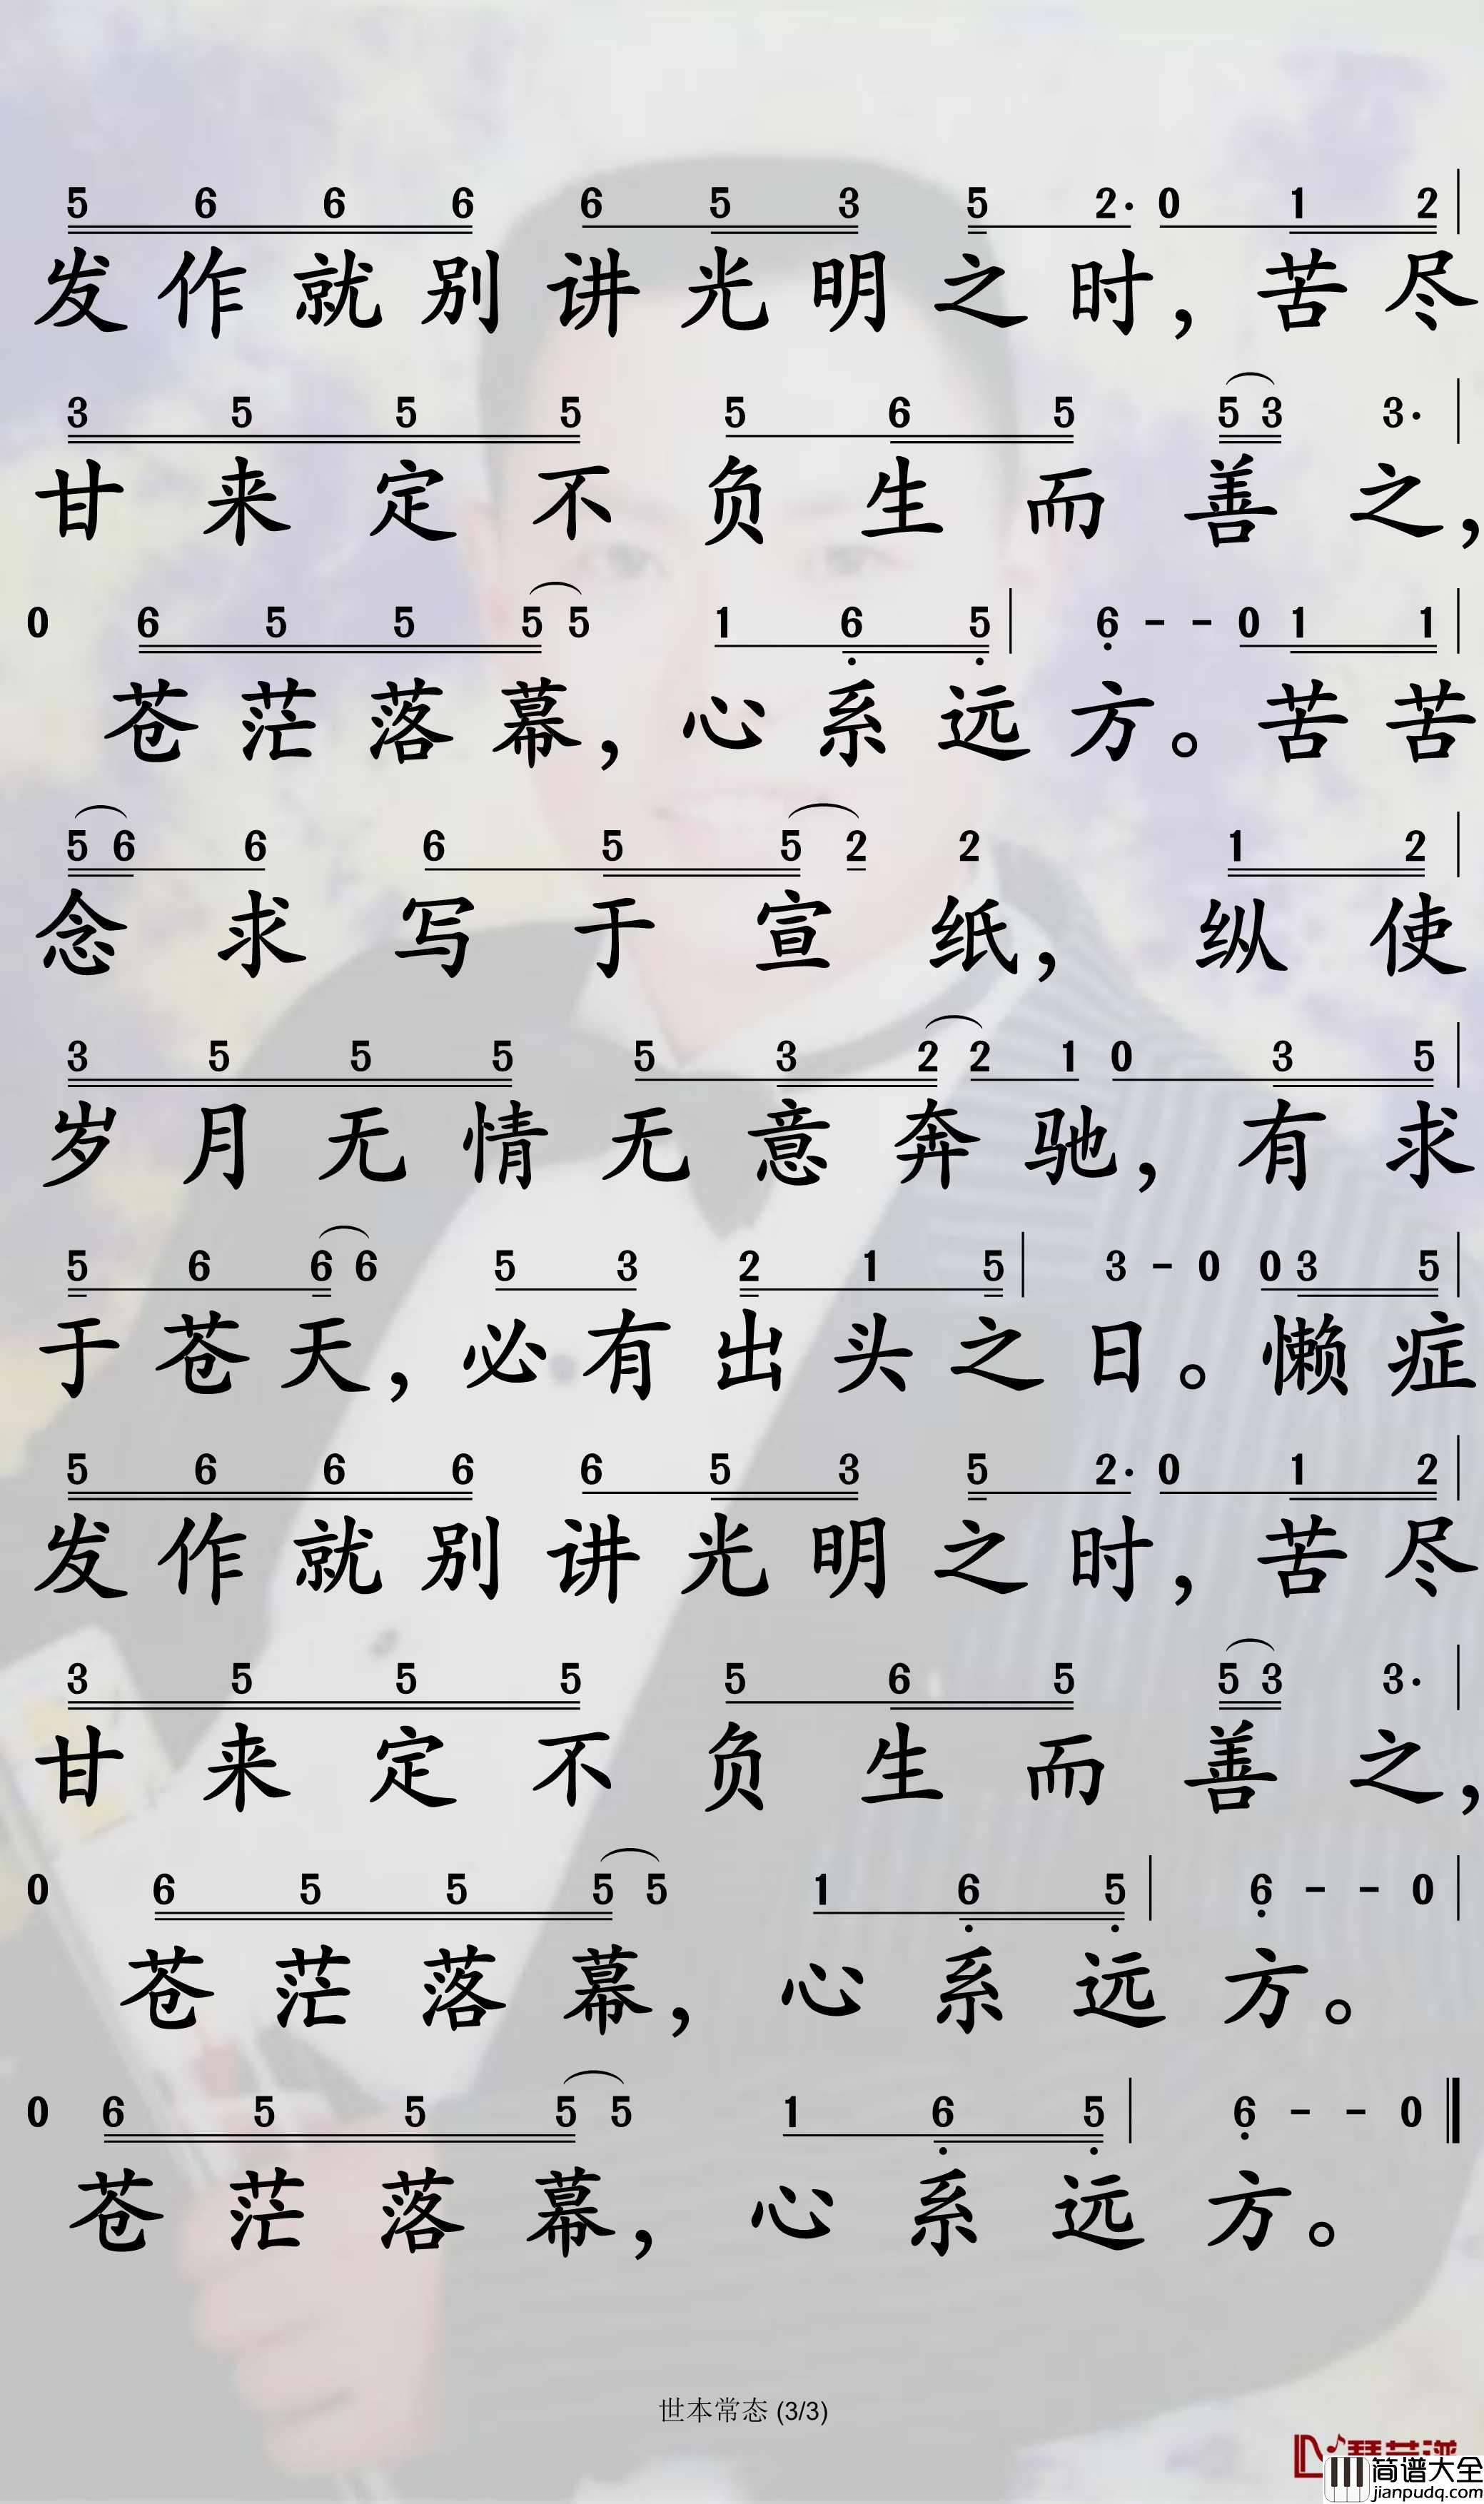 5 6 6 6 6 5 3 5 2· 0 1 2 |
发作就别讲光明之时，苦尽
3 5 5 5 5 6 5 5 3 3· |
甘来定不负生而善之，
0 6 5 5 5 5 1 6̣ 5̣ | 6̣ - - 0 1 1 |
苍茫落幕，心系远方。苦苦
5 6 6 6 5 5 2 2 1 2 |
念求写于宣纸，纵使
3 5 5 5 5 3 2 2 1 0 3 5 |
岁月无情无意奔驰，有求
5 6 6 6 5 3 2 1 5 | 3 - 0 0 3 5 |
于苍天，必有出头之日。懒症
5 6 6 6 6 5 3 5 2· 0 1 2 |
发作就别讲光明之时，苦尽
3 5 5 5 5 6 5 5 3 3· |
甘来定不负生而善之，
0 6 5 5 5 5 1 6̣ 5̣ | 6̣ - - 0 |
苍茫落幕，心系远方。
0 6 5 5 5 5 1 6̣ 5̣ | 6̣ - - 0
苍茫落幕，心系远方。
世本常态 (3/3)
简谱大全
jianpudq.com